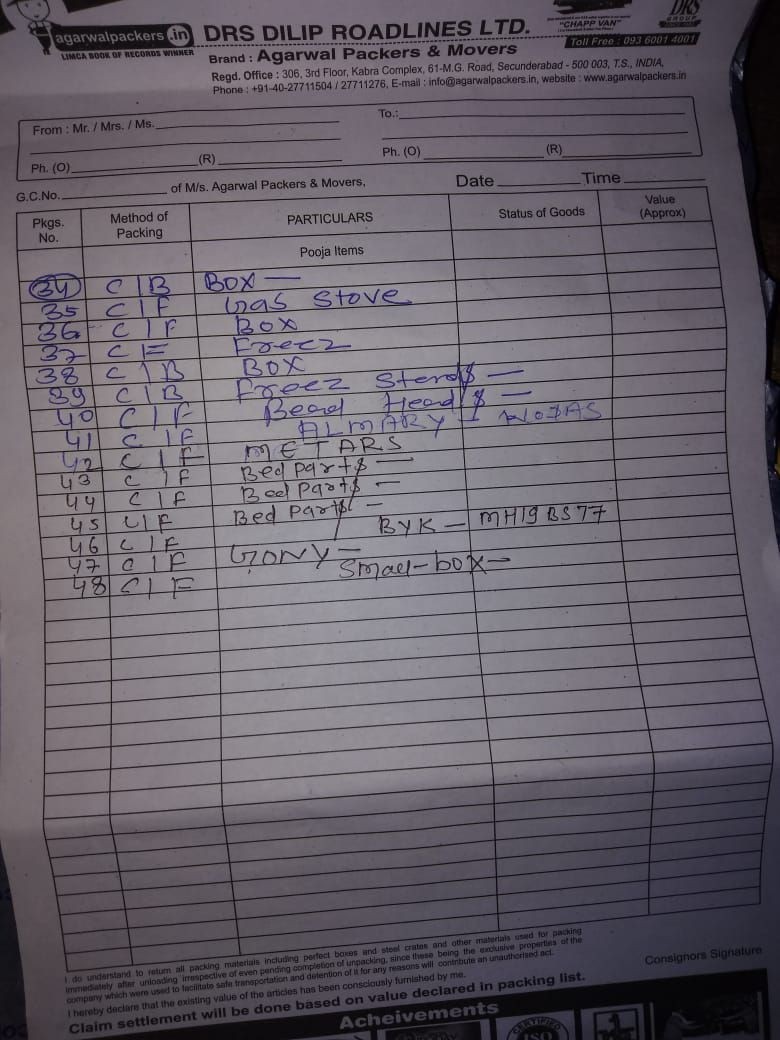 agarwalpackers .in
LIMCA BOOK OF RECORDS WINNER
DRS DILIP ROADLINES LTD.
"CHAPP VAN"
DRS
GROUP
Toll Free : 093 6001 4001
Brand : Agarwal Packers & Movers
Regd. Office : 306, 3rd Floor, Kabra Complex, 61-M.G. Road, Secunderabad - 500 003, T.S., INDIA,
Phone : +91-40-27711504 / 27711276, E-mail : info@agarwalpackers.in, website : www.agarwalpackers.in
From : Mr. / Mrs. / Ms.
To.:
Ph. (O) (R)
Ph. (O) (R)
G.C.No. of M/s. Agarwal Packers & Movers, Date Time
Pkgs. No. Method of Packing PARTICULARS Status of Goods Value (Approx)
Pooja Items
34 C I B BOX —
35 C I F Gas Stove
36 C I F BOX
37 C F Freez
38 C I B BOX
39 C I B Freez Stend —
40 C I F Bead Head —
41 C I F ALMARY —
42 C I F METARS
43 C I F Bed Parts —
44 C I F Bed Parts —
45 C I F Bed Parts —
46 C I F BYK — MH19BS77
47 C I F GONY —
48 C I F Small-box —
I do understand to return all packing materials including perfect boxes and steel crates and other materials used for packing
immediately after unloading irrespective of even pending completion of unpacking, since these being the exclusive properties of the
company which were used to facilitate safe transportation and detention of it for any reasons will contribute an unauthorised act.
I hereby declare that the existing value of the articles has been consciously furnished by me.
Consignors Signature
Claim settlement will be done based on value declared in packing list.
Acheivements
CERTIFIED
ISO